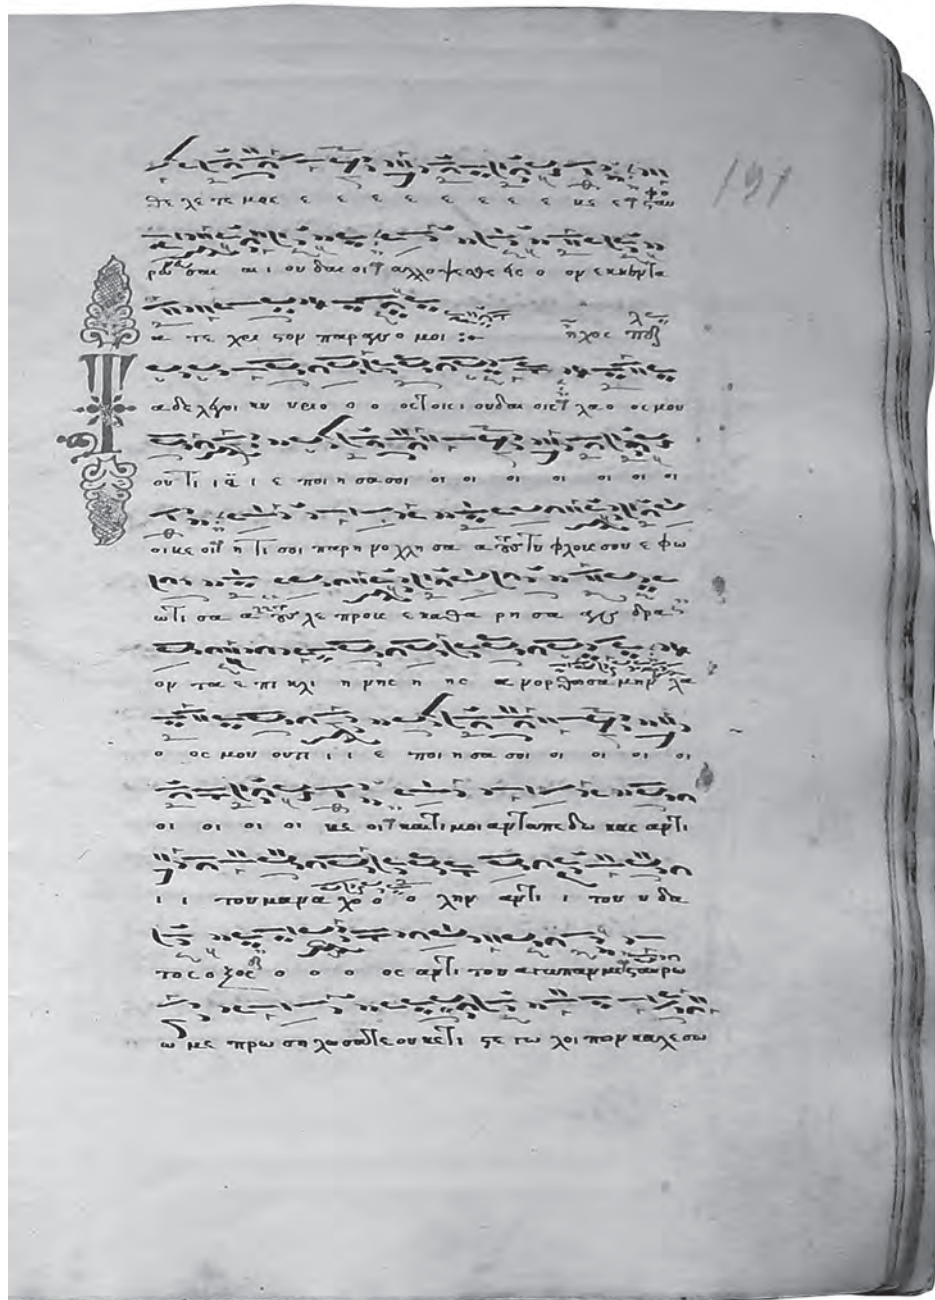 θε λε τε μος ε ε ε ε ε ε ε ε κε ε σταυ
ρω σαι αι ι ου δαι οι αλλ ο ψε σθε εις ο ον εκ κεν τη
α τε χοι τον παρα νο μοι :+ ἦχος πλ
α δε λεγει κυ υριο ο ο ος τοις ι ου δαι οις λα ο ος μου
ου τι ι ι ι ε ποι η σα σοι οι οι οι οι οι οι οι
οι κε οι η τι σοι παρη νο χλη σα α τους τυ φλους σου ε φω
ω τι σα α τους λε πρους ε κα θα ρη σα αν δρα
ον τα ε πι κλι η νης η ης α νορ θωσα μην λα
ο ος μου ου τι ι ι ε ποι η σα σοι οι οι οι οι οι
οι οι οι οι κε οι και τι μοι αν τα πε δω κας αντι
ι ι του μα να χο ο ο λην αντι ι του υ δα
τος ο ξος ο ο ο ος αντι του αγαπαν με σταυρω
ω με προ ση λω σα τε ου κε τι στε γω λοι πον κα λε σω
191